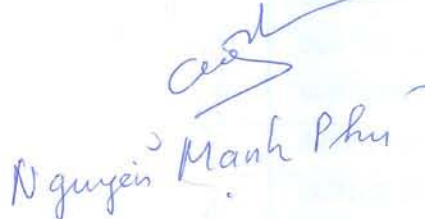 Nguyễn Mạnh Phú